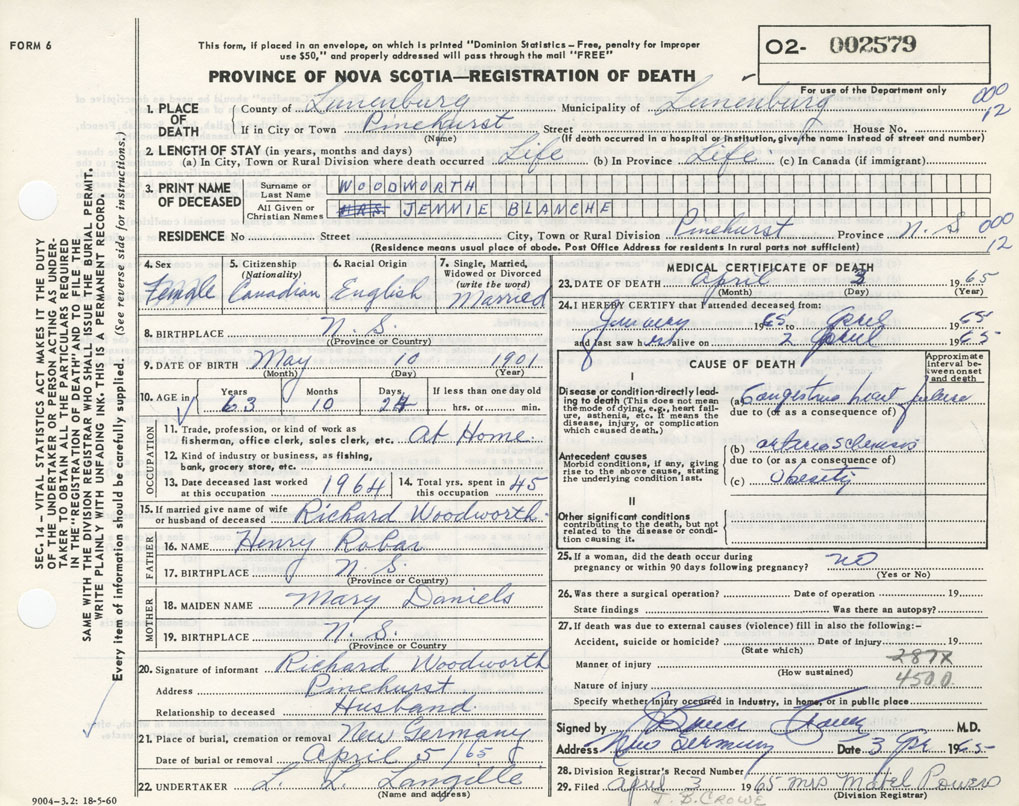 FORM 6
This form, if placed in an envelope, on which is printed "Dominion Statistics – Free, penalty for improper
use $50," and properly addressed will pass through the mail "FREE"
PROVINCE OF NOVA SCOTIA—REGISTRATION OF DEATH
02- 002579
For use of the Department only
000
12
1. PLACE OF DEATH
County of Lunenburg Municipality of Lunenburg
If in City or Town Pinehurst Street House No.
(Name) (If death occurred in a hospital or institution, give the name instead of street and number)
2. LENGTH OF STAY (in years, months and days)
(a) In City, Town or Rural Division where death occurred Life (b) In Province Life (c) In Canada (if immigrant)
3. PRINT NAME OF DECEASED
Surname or Last Name WOODWORTH
All Given or Christian Names MRS. JENNIE BLANCHE
RESIDENCE No Street City, Town or Rural Division Pinehurst Province N. S
(Residence means usual place of abode. Post Office Address for residents in rural parts not sufficient)
000
12
4. Sex Female
5. Citizenship (Nationality) Canadian
6. Racial Origin English
7. Single, Married, Widowed or Divorced (write the word) Married
8. BIRTHPLACE N. S.
(Province or Country)
9. DATE OF BIRTH May 10 1901
(Month) (Day) (Year)
10. AGE in Years 63 Months 10 Days 24 If less than one day old hrs. or min.
OCCUPATION
11. Trade, profession, or kind of work as
fisherman, office clerk, sales clerk, etc. At Home
12. Kind of industry or business, as fishing,
bank, grocery store, etc.
13. Date deceased last worked at this occupation 1964
14. Total yrs. spent in this occupation 45
15. If married give name of wife or husband of deceased Richard Woodworth
FATHER
16. NAME Henry Robar
17. BIRTHPLACE N. S.
(Province or Country)
MOTHER
18. MAIDEN NAME Mary Daniels
19. BIRTHPLACE N. S.
(Province or Country)
20. Signature of informant Richard Woodworth
Address Pinehurst
Relationship to deceased Husband
21. Place of burial, cremation or removal New Germany
Date of burial or removal April 5/65
22. UNDERTAKER L. L. Langille
(Name and address)
9004-3.2: 18-5-60
MEDICAL CERTIFICATE OF DEATH
23. DATE OF DEATH April 3 1965
(Month) (Day) (Year)
24. I HEREBY CERTIFY that I attended deceased from:
January 1965 to April 65
and last saw her alive on 2 April 1965
CAUSE OF DEATH
Approximate interval between onset and death
I
Disease or condition directly leading to death (This does not mean the mode of dying, e.g., heart failure, asthenia, etc. It means the disease, injury, or complication which caused death.)
(a) Congestive heart failure
due to (or as a consequence of)
Antecedent causes
Morbid conditions, if any, giving rise to the above cause, stating the underlying condition last.
(b)
due to (or as a consequence of)
(c) Obesity
II
Other significant conditions
contributing to the death, but not related to the disease or condition causing it.
25. If a woman, did the death occur during
pregnancy or within 90 days following pregnancy? no
(Yes or No)
26. Was there a surgical operation? Date of operation 19
State findings Was there an autopsy?
27. If death was due to external causes (violence) fill in also the following:-
Accident, suicide or homicide? Date of injury 19
(State which)
Manner of injury 287X
(How sustained)
Nature of injury 4500
Specify whether injury occurred in industry, in home, or in public place
Signed by M.D.
Address New Germany Date 3 Apr 1965
28. Division Registrar's Record Number
29. Filed April 3 1965 Mrs Mabel Powers
(Division Registrar)
J. B. CROWE
SEC. 14 – VITAL STATISTICS ACT MAKES IT THE DUTY
OF THE UNDERTAKER OR PERSON ACTING AS UNDER-
TAKER TO OBTAIN ALL THE PARTICULARS REQUIRED
IN THE "REGISTRATION OF DEATH" AND TO FILE THE
SAME WITH THE DIVISION REGISTRAR WHO SHALL ISSUE THE BURIAL PERMIT.
WRITE PLAINLY WITH UNFADING INK. THIS IS A PERMANENT RECORD.
Every item of information should be carefully supplied. (See reverse side for instructions.)